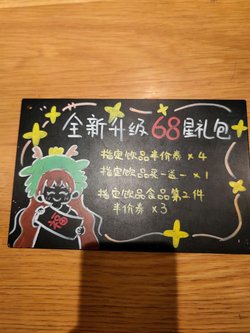 全新升级68星礼包
指定饮品半价券×4
指定饮品买一送一×1
指定饮品食品第2件
半价券×3